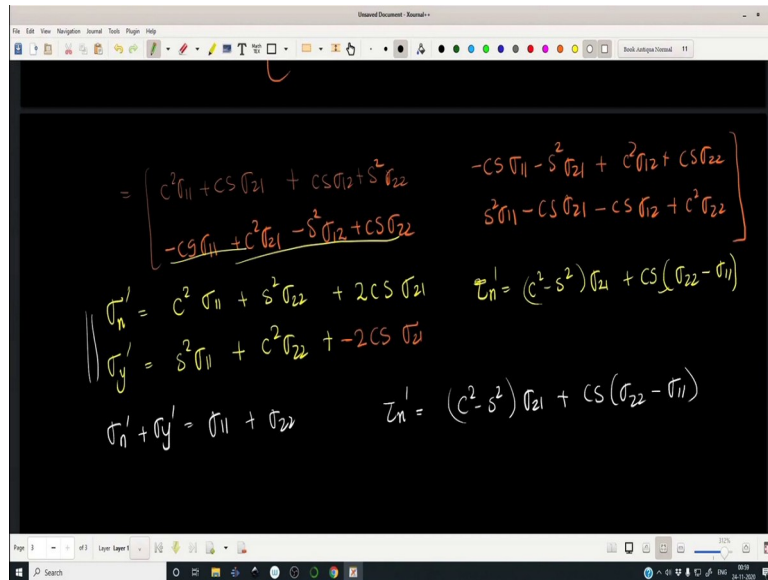 Unsaved Document - Xournal++
File Edit View Navigation Journal Tools Plugin Help
Book Antiqua Normal 11
= [ c²σ11 + csσ21 + csσ12 + s²σ22   -csσ11 - s²σ21 + c²σ12 + csσ22
-csσ11 + c²σ21 - s²σ12 + csσ22   s²σ11 - csσ21 - csσ12 + c²σ22 ]
σn' = c²σ11 + s²σ22 + 2csσ21   τn' = (c²-s²)σ21 + cs(σ22 - σ11)
σy' = s²σ11 + c²σ22 + -2csσ21
σn' + σy' = σ11 + σ22   τn' = (c²-s²)σ21 + cs(σ22 - σ11)
Page 3 of 3 Layer Layer 1 312%
Search ENG 00:59
24-11-2020